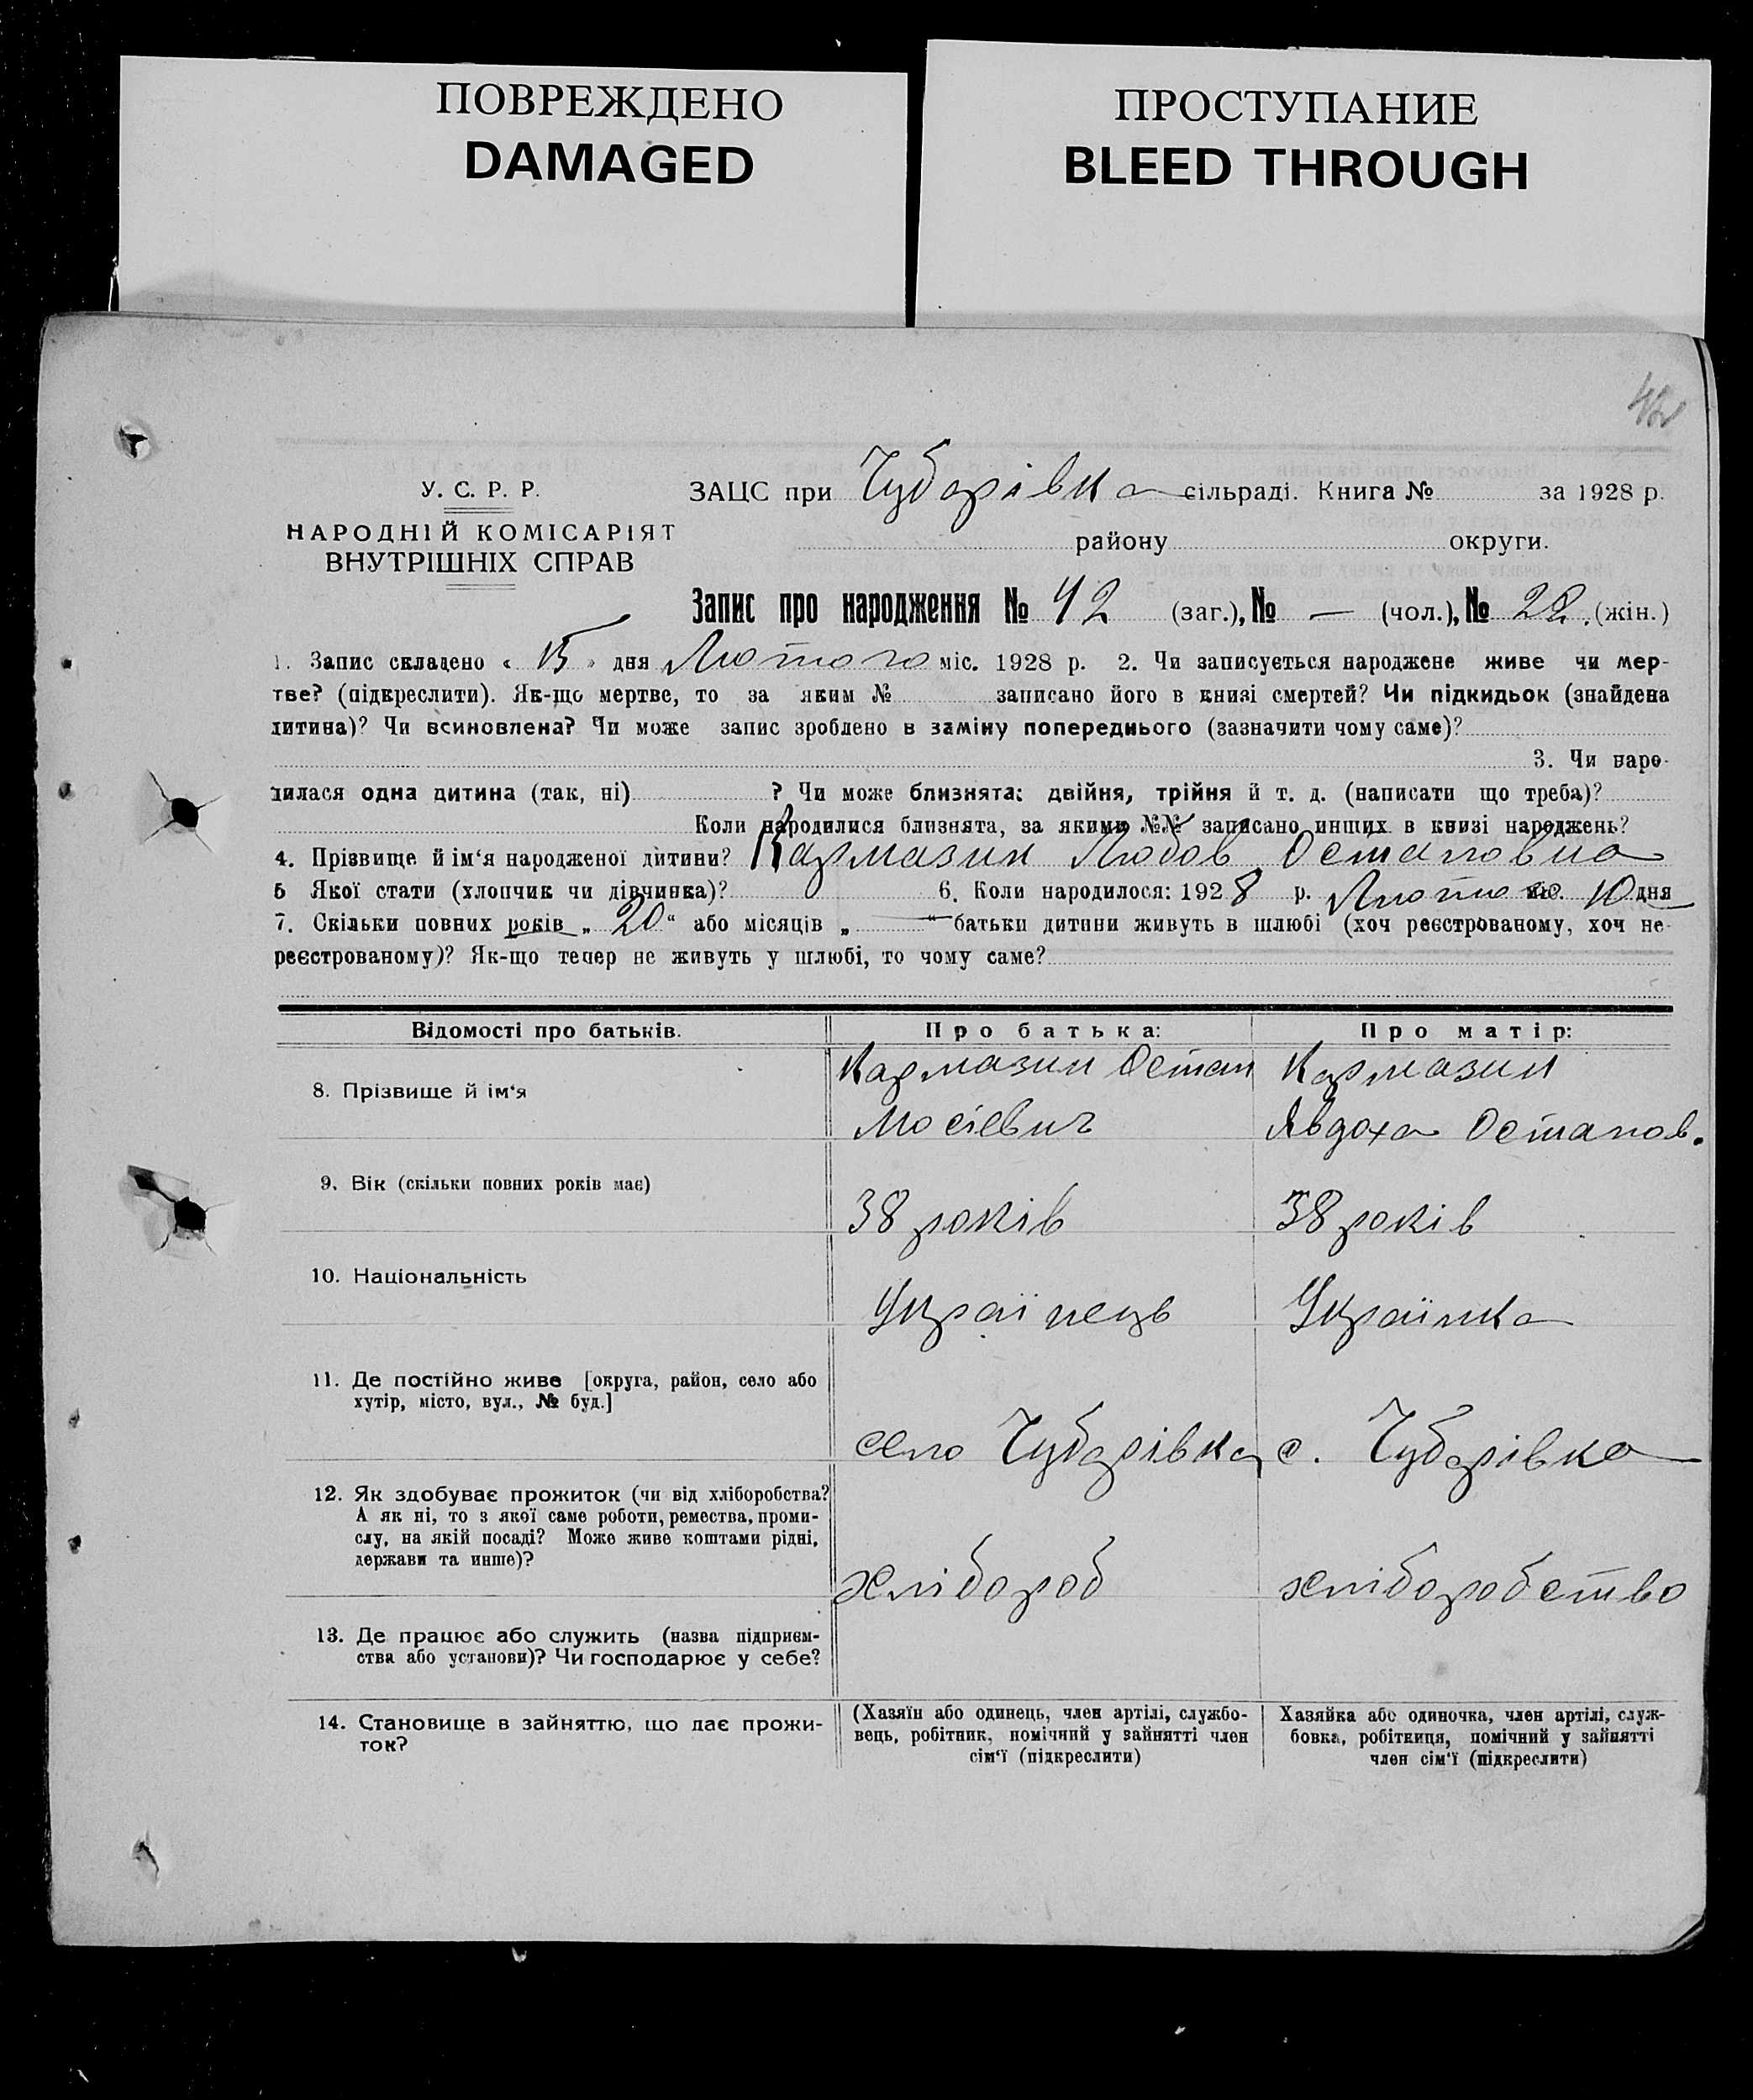 ПОВРЕЖДЕНО
DAMAGED
ПРОСТУПАНИЕ
BLEED THROUGH
42
У. С. Р. Р.
НАРОДНІЙ КОМІСАРІЯТ
ВНУТРІШНІХ СПРАВ
ЗАЦС при Чубарівка сільраді. Книга № за 1928 р.
району округи.
Запис про народження № 42 (заг.), № — (чол.), № 22. (жін.)
1. Запис складено « 15 » дня Лютого міс. 1928 р. 2. Чи записується народжене живе чи мер-
тве? (підкреслити). Як-що мертве, то за яким № записано його в книзі смертей? Чи підкидьок (знайдена
дитина)? Чи всиновлена? Чи може запис зроблено в заміну попереднього (зазначити чому саме)?
3. Чи наро-
дилася одна дитина (так, ні) ? Чи може близнята: двійня, трійня й т. д. (написати що треба)?
Коли народилися близнята, за якими №№ записано инших в книзі народжень?
4. Прізвище й ім‘я народженої дитини? Кармазин Любов Остаповна
5 Якої стати (хлопчик чи дівчинка)? 6. Коли народилося: 1928 р. Лютого міс. 10 дня
7. Скільки повних років „ 20 “ або місяців „ — “ батьки дитини живуть в шлюбі (хоч реєстрованому, хоч не-
реєстрованому)? Як-що тепер не живуть у шлюбі, то чому саме?
Відомості про батьків. Про батька: Про матір:
8. Прізвище й ім‘я Кармазин Остап Кармазин
Мосієвич Явдоха Остапов.
9. Вік (скільки повних років має) 38 років 38 років
10. Національність Українець Українка
11. Де постійно живе [округа, район, село або
хутір, місто, вул., № буд.]
село Чубарівка с. Чубарівка
12. Як здобуває прожиток (чи від хліборобства?
А як ні, то з якої саме роботи, ремества, проми-
слу, на якій посаді? Може живе коштами рідні,
держави та инше)?
хлібороб хліборобство
13. Де працює або служить (назва підприєм-
ства або установи)? Чи господарює у себе?
14. Становище в зайняттю, що дає прожи-
ток?
(Хазяїн або одинець, член артілі, службо-
вець, робітник, помічний у зайнятті член
сім‘ї (підкреслити)
Хазяйка або одиночка, член артілі, служ-
бовка, робітниця, помічний у зайнятті
член сім‘ї (підкреслити)